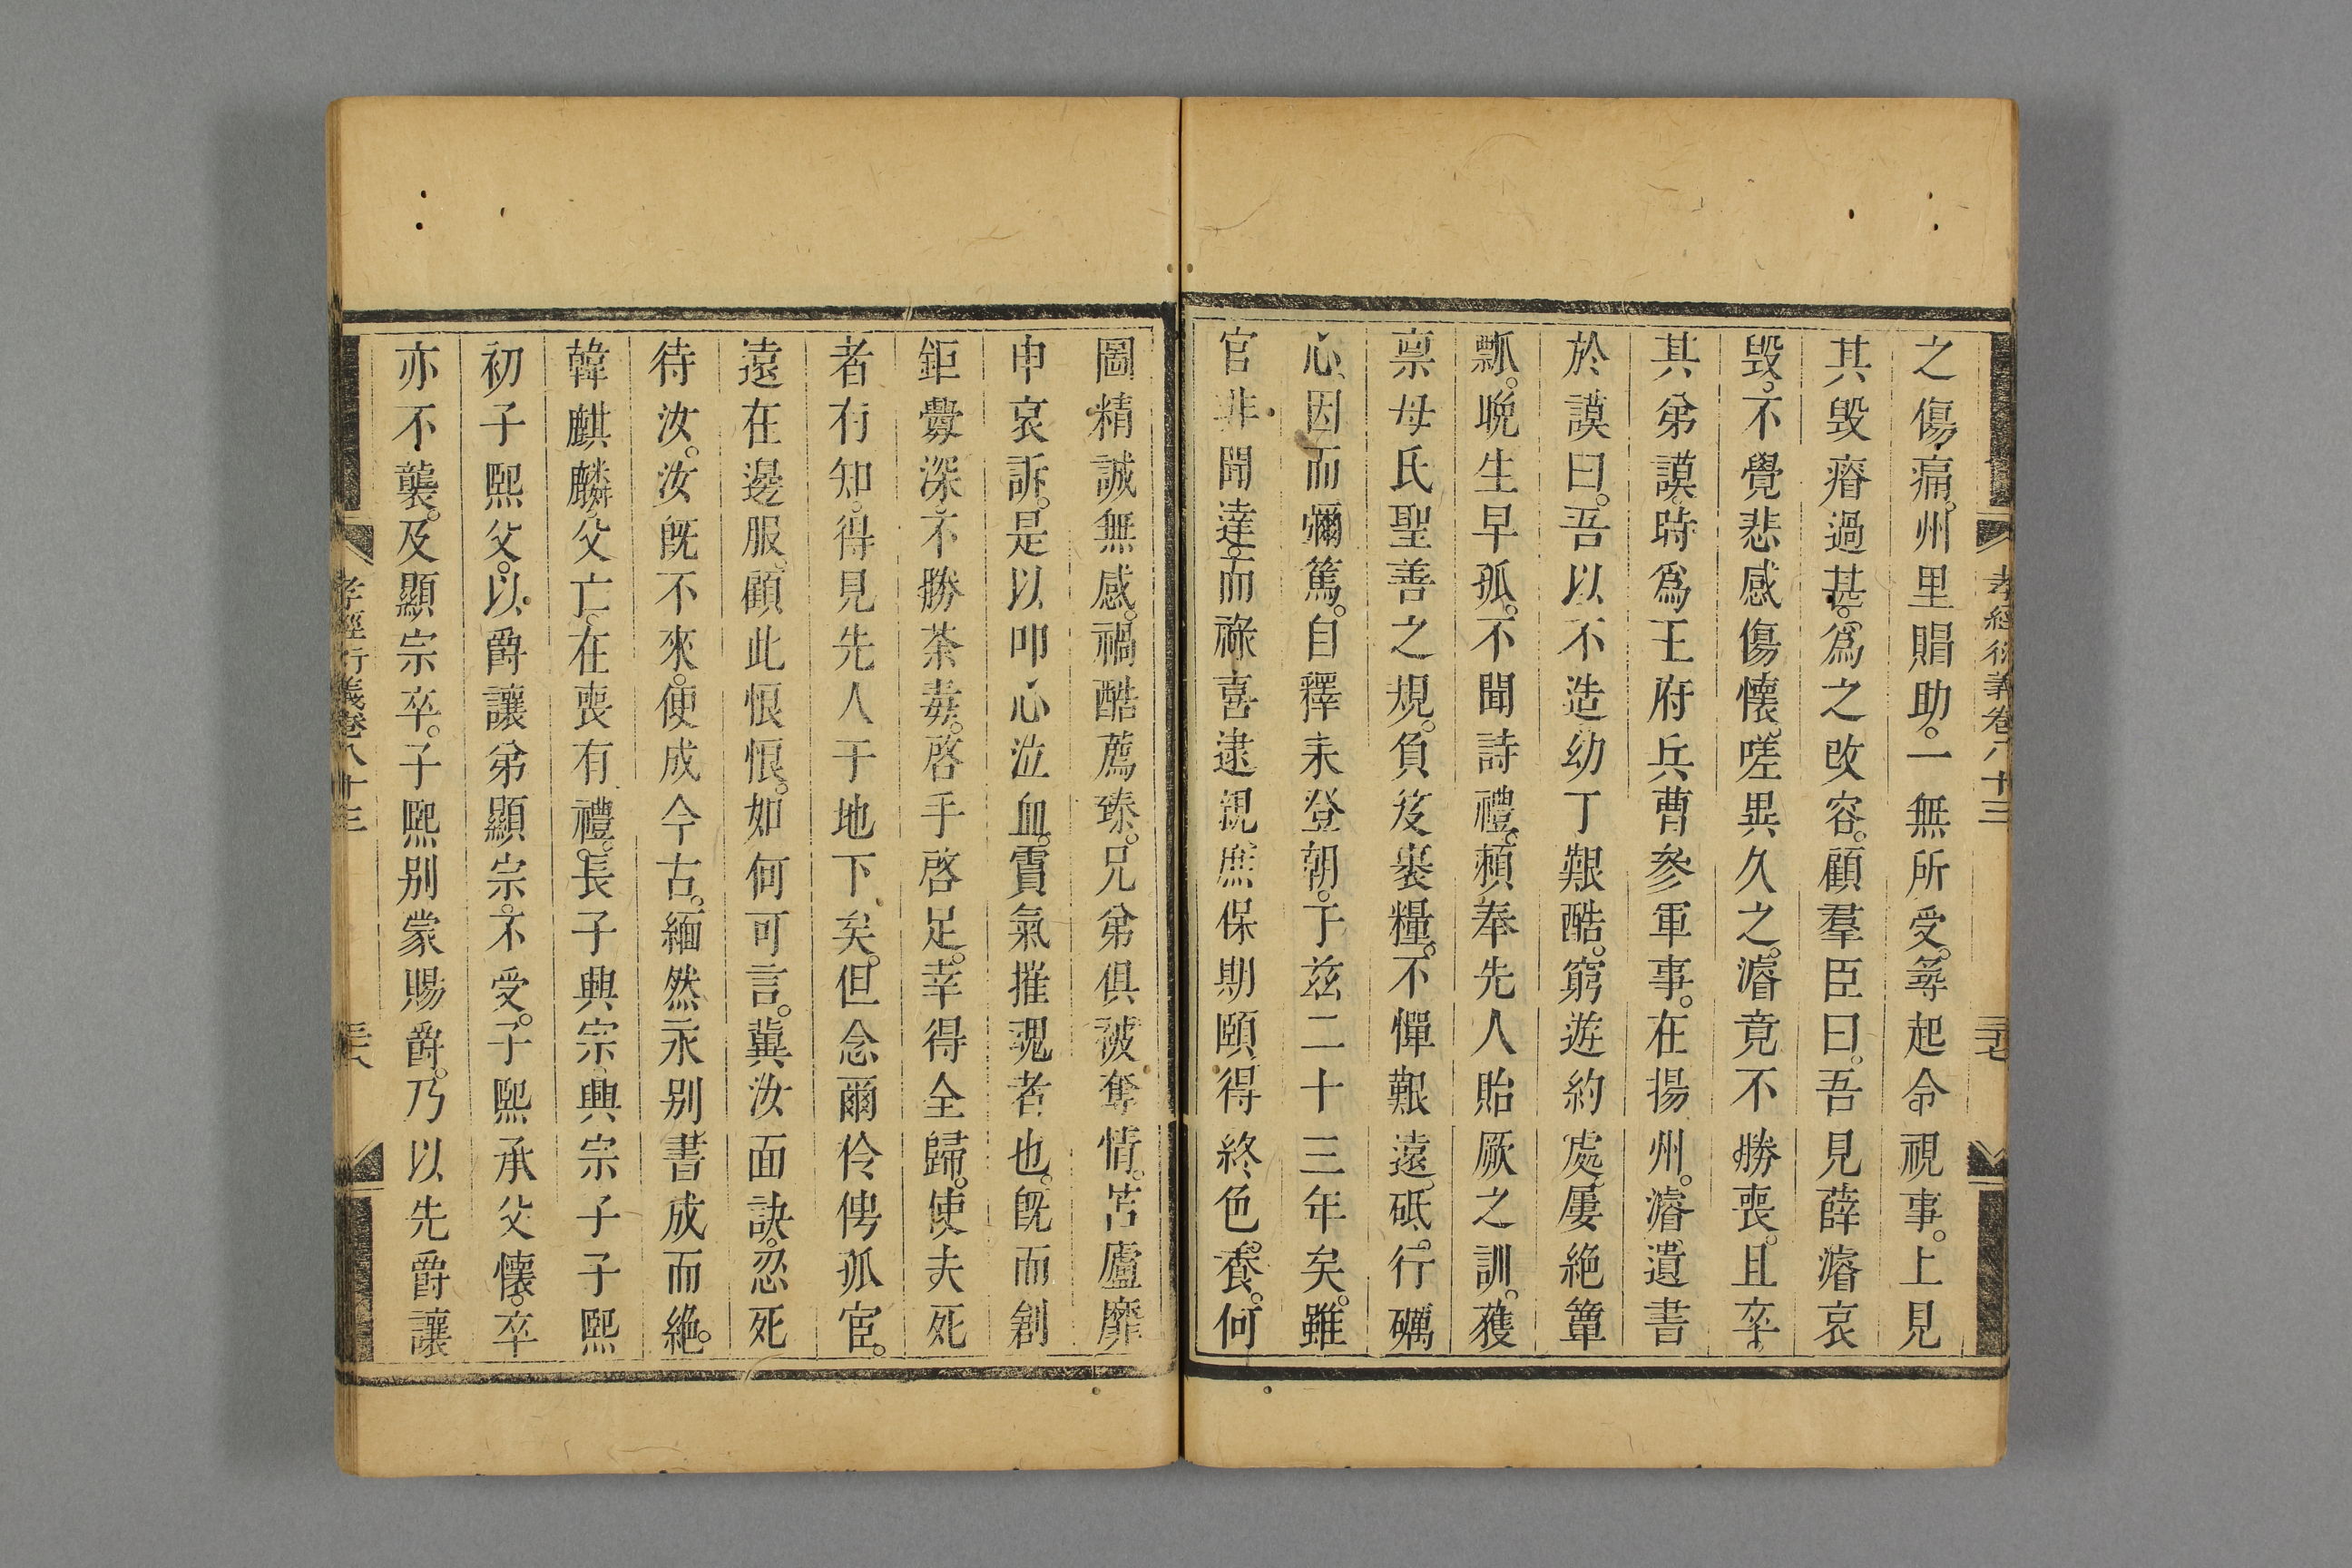 孝經衍義卷八十三
三十七
之傷痛。州里賵助。一無所受。尋起令視事。上見
其毀瘠過甚。爲之改容。顧羣臣曰。吾見薛濬哀
毀。不覺悲感傷懷。嗟異久之。濬竟不勝喪。且卒。
其弟謨。時爲王府兵曹參軍事。在揚州。濬遺書
於謨曰。吾以不造。幼丁艱酷。窮遊約處。屢絶簞
瓢。晚生早孤。不聞詩禮。頼奉先人貽厥之訓。獲
禀母氏聖善之規。負笈裹糧。不憚艱遠。砥行礪
心、因而彌篤。自釋耒登朝。于兹二十三年矣。雖
官非聞達。而祿喜逮親。庶保期頤。得終色養。何
圖精誠無感。禍酷薦臻。兄弟俱被奪情。苫廬靡
申哀訴。是以叩心泣血。霣氣摧䰟者也。旣而創
鉅釁深。不勝荼毒。啓手啓足。幸得全歸。使夫死
者有知。得見先人于地下矣。但念爾伶俜孤宦。
遠在邊服。顧此恨恨。如何可言。冀汝面訣。忍死
待汝。汝旣不來。便成今古。緬然永别。書成而絶。
韓麒麟。父亡。在喪有禮。長子興宗。興宗子子熙
初子熙父。以爵讓弟顯宗。不受。子熙承父懷。卒
亦不襲。及顯宗卒。子熙别蒙賜爵。乃以先爵讓
孝經衍義卷八十三
三十八